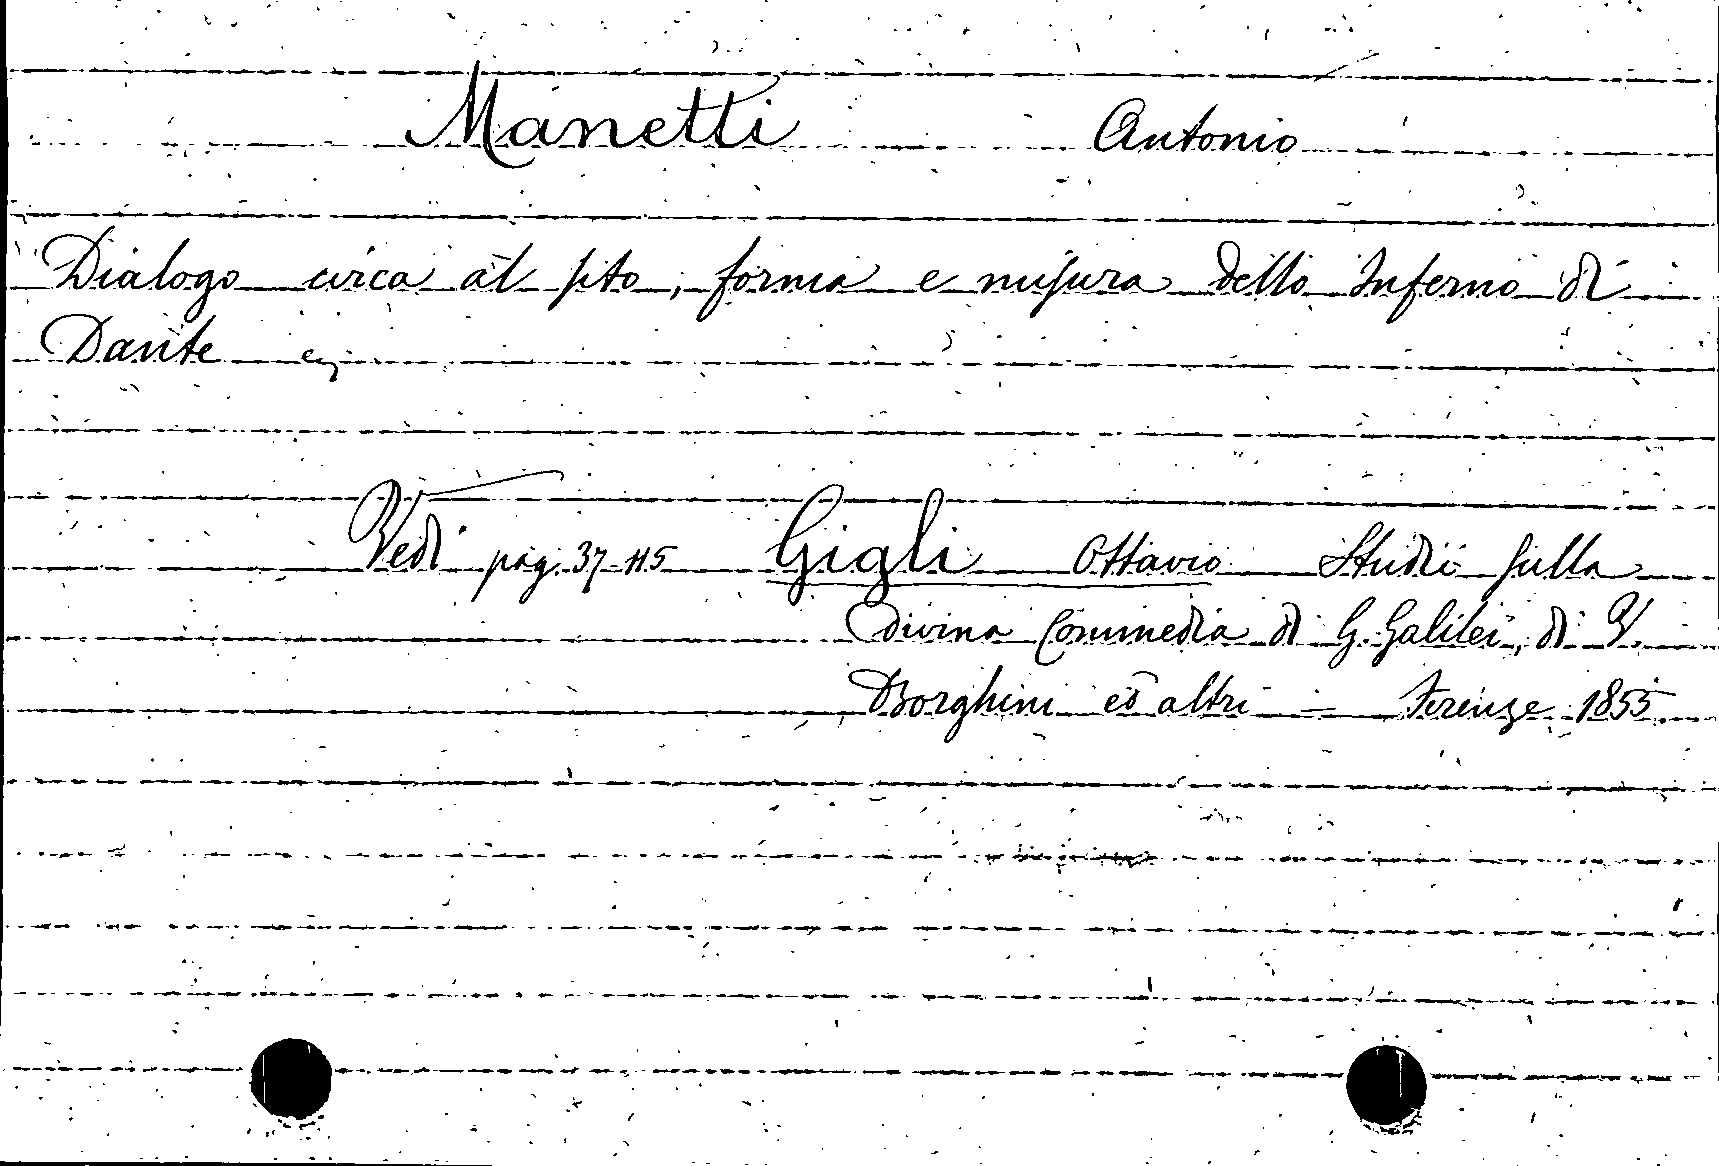 Manetti Antonio
Dialogo circa al sito, forma e misura dello Inferno di
Dante
Vedi pag. 37-115 Gigli Ottavio Studii sulla
Divina Commedia di G. Galilei, di V.
Borghini ed altri = Firenze 1855